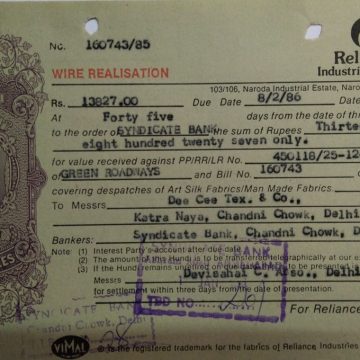 No. 160743/85
Relia
Industries
WIRE REALISATION
103/106, Naroda Industrial Estate, Naroda
Rs. 13827.00 Due Date 8/2/86
At Forty five days from the date of this
to the order of SYNDICATE BANK the sum of Rupees Thirteen
eight hundred twenty seven only.
for value received against PP/RR/LR No. 450118/25-12
of GREEN ROADWAYS and Bill No. 160743
covering despatches of Art Silk Fabrics/Man Made Fabrics.
To Messrs Dee Cee Tex. & Co.,
Katra Naya, Chandni Chowk, Delhi
Bankers: Syndicate Bank, Chandni Chowk, De
Note: (1) Interest Party's account after due date.
(2) Amount of this Hundi is to be transferred telegraphically at our ex
(3) If the Hundi remains unretired on due date to be presented
Messrs Devisahai C. Delhi
for settlement within three days from the date of presentation.
BANK
TBD NO.
For Reliance
SYNDICATE BANK
Chandni Chowk, Delhi
VIMAL
is the registered trademark for the fabrics of Reliance Industries
ES